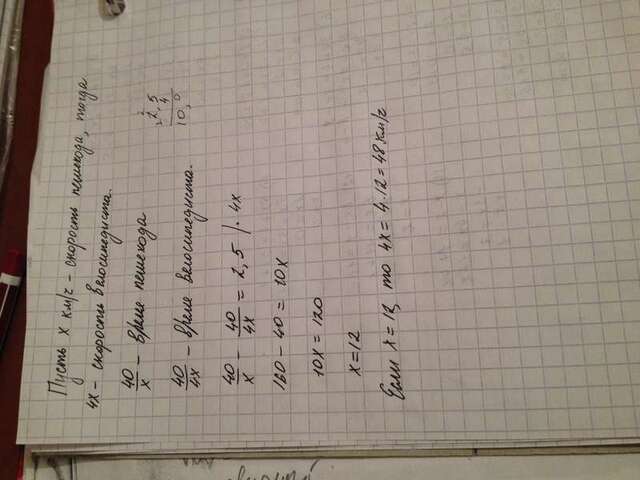 Пусть x км/ч – скорость пешехода, тогда
4x – скорость велосипедиста.
40/x – время пешехода
40/4x – время велосипедиста.
40/x – 40/4x = 2,5 | · 4x
160 – 40 = 10x
10x = 120
x = 12
Если x = 12, то 4x = 4 · 12 = 48 км/ч
2
2,5
2 4
10,0